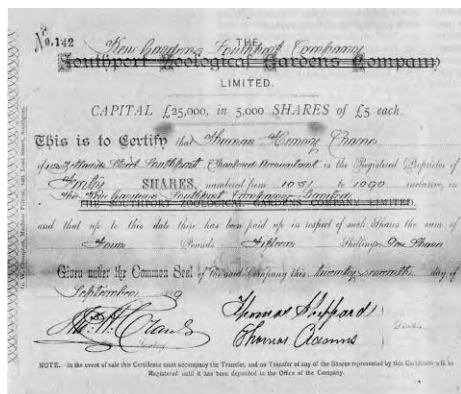 No. 142
THE
Kew Gardens Southport Company
Southport Zoological Gardens Company
LIMITED.
CAPITAL £25,000, in 5,000 SHARES of £5 each.
This is to Certify that Thomas Henry
of Street Southport Chartered Accountant is the Registered Proprietor of
SHARES, numbered from 1051 to 1090 inclusive, in
The Kew Gardens Southport Company Limited
THE SOUTHPORT ZOOLOGICAL GARDENS COMPANY LIMITED
and that up to this date there has been paid up in respect of such Shares the sum of
Four Pounds Fifteen Shillings per Share
Given under the Common Seal of the said Company this twenty seventh day of
September
Thomas Sheppard
Thomas
NOTE. - In the event of sale this Certificate must accompany the Transfer, and no Transfer of any of the Shares represented by this Certificate will be
Registered until it has been deposited in the Office of the Company.